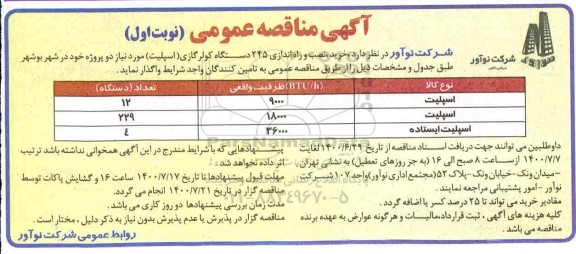 آگهی مناقصه عمومی (نوبت اول)
شرکت نوآور
سهامی خاص
شرکت نوآور در نظر دارد خرید، نصب و راه اندازی ۲۴۵ دستگاه کولر گازی (اسپلیت) مورد نیاز دو پروژه خود در شهر بوشهر
طبق جدول و مشخصات ذیل را از طریق مناقصه عمومی به تامین کنندگان واجد شرایط واگذار نماید.
نوع کالا (BTU/h) ظرفیت واقعی تعداد (دستگاه)
اسپلیت ۹۰۰۰ ۱۲
اسپلیت ۱۸۰۰۰ ۲۲۹
اسپلیت ایستاده ۳۶۰۰۰ ٤
داوطلبین می توانند جهت دریافت اسناد مناقصه از تاریخ ۱۴۰۰/۶/۲۹ لغایت
۱۴۰۰/۷/۷ از ساعت ۸ صبح الی ۱۶ (به جز روزهای تعطیل) به نشانی تهران
-میدان ونک-خیابان ونک-پلاک ۵۲(مجتمع اداری نوآور)واحد ۱۰۷ شرکت
نوآور -امور پشتیبانی مراجعه نمایند.
مقادیر خرید می تواند تا ۲۵ درصد کسر یا اضافه گردد.
کلیه هزینه های آگهی ، ثبت قرارداد،مالیات و هر گونه عوارض به عهده برنده
مناقصه می باشد.
پیشنهادهایی که با شرایط مندرج در این آگهی همخوانی نداشته باشد ترتیب
اثر داده نخواهد شد.
مهلت قبول پیشنهادها تا تاریخ ۱۴۰۰/۷/۱۷ ساعت ۱۶ و گشایش پاکات توسط
مناقصه گزار در تاریخ ۱۴۰۰/۷/۲۱ انجام می گردد.
مدت زمان بررسی پیشنهادها دو روز کاری می باشد.
مناقصه گزار در پذیرش یا عدم پذیرش بدون نیاز به ذکر دلیل ، مختار است.
روابط عمومی شرکت نوآور